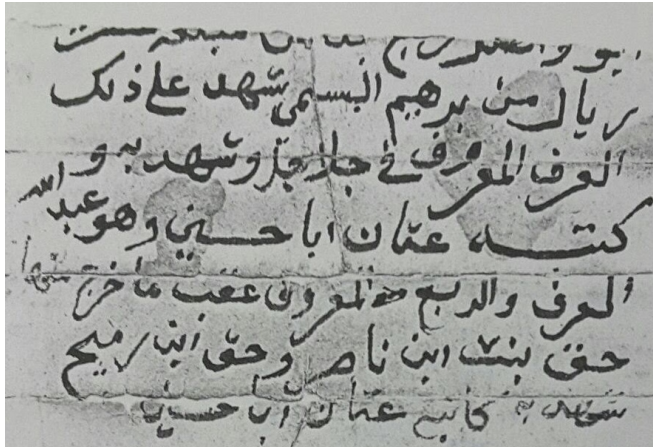 ريال من برهيم البسمى شهد على ذلك
العرف المعروف في جلاجل وشهد به و
كتبه عثمان ابا حسين وهو عبد الله
العرف والربع المعروف عقب ما خرج منها
حق بنت ابن ناصر وحق ابن رميح
شهد به كاتبه عثمان ابا حسين